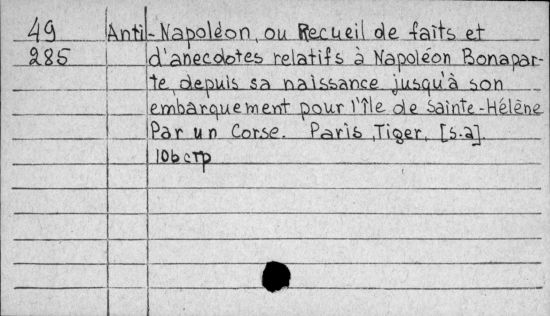 49 Anti-Napoléon, ou Recueil de faits et
285 d'anecdotes relatifs à Napoléon Bonapar-
te, depuis sa naissance jusqu'à son
embarquement pour l'Île de Sainte-Hélène
Par un Corse. Paris, Tiger, [s.a]
106 стр